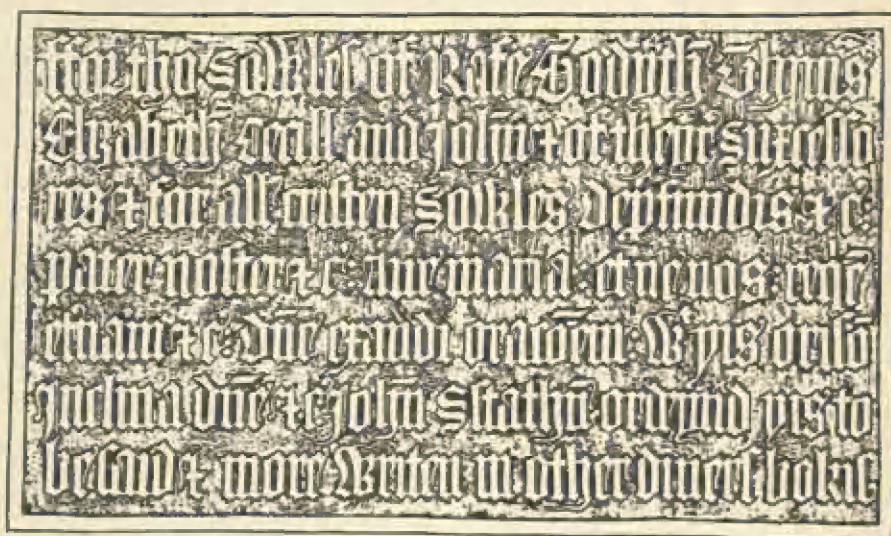 ffor tho Sawles of Rafe, Godyth, Thom̃s
Elizabeth, Cecill and john & of theyr Suxcesso
res & for all cristen Sawles depfundis & c̃:
pater noster & c̃: Aue maria: et ne nos: reqē
et'nam & c̃: dn̄e exaudi oracōem: wt yis orisō
Inclina dn̄e & c̃ john Sstathū ordynd yis to
be Sayd & more Writen in other diuers bokis